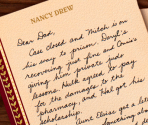 NANCY DREW
Dear Dad,
Case closed and Mitch is on
his way to prison. Deryl's
recovering just fine and Chris's
giving him private judo
lessons. Halk agreed to pay
for the damages to the
pharmacy, and Hal got his
scholarship.
Aunt Eloise got a let
something